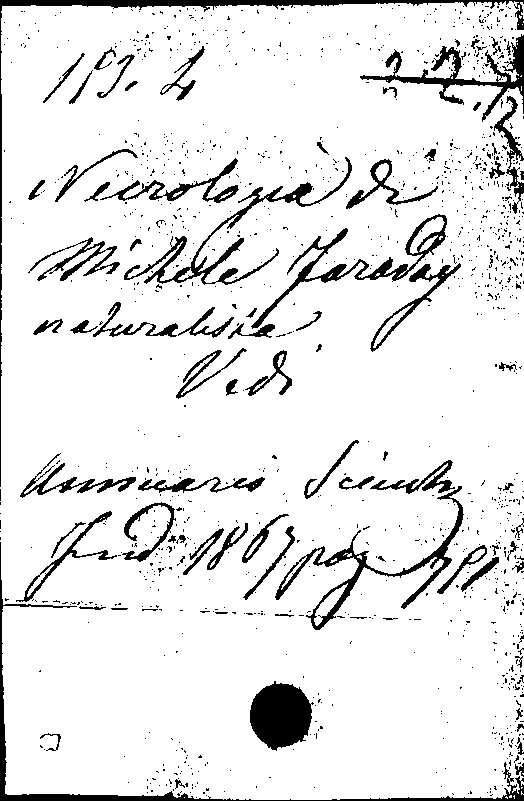 183. 4
Necrologia di
Michele Faraday
naturalista
Vedi
Annuario Scient
Ind 1867 pag. 781